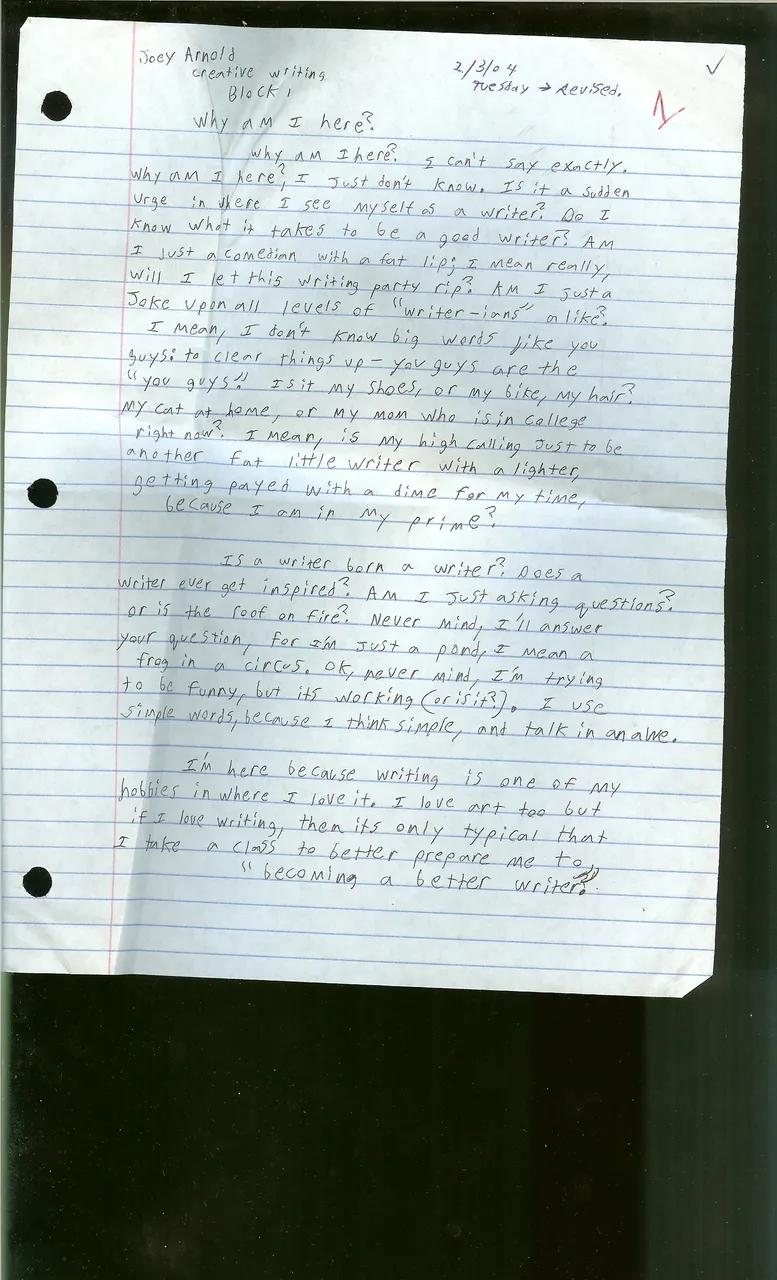 Joey Arnold
creative writing
Block 1
2/3/04
Tuesday → Revised.
Why am I here?
Why am I here? I can't say exactly.
Why am I here?, I just don't know. Is it a sudden
urge in where I see myself as a writer? Do I
know what it takes to be a good writer? Am
I just a comedian with a fat lip; I mean really,
will I let this writing party rip? Am I just a
Joke upon all levels of "writer-ians" a like?
I mean, I don't know big words like you
guys: to clear things up - you guys are the
"you guys!" Is it my shoes, or my bike, my hair?
My cat at home, or my mom who is in college
right now? I mean, is my high calling just to be
another fat little writer with a lighter,
getting payed with a dime for my time,
because I am in my prime?
Is a writer born a writer? Does a
writer ever get inspired? Am I just asking questions?
or is the roof on fire? Never mind, I'll answer
your question, for I'm just a pond, I mean a
frog in a circus. OK, never mind, I'm trying
to be funny, but its working (or is it?). I use
simple words, because I think simple, and talk in an awe.
I'm here because writing is one of my
hobbies in where I love it. I love art too but
if I love writing, then its only typical that
I take a class to better prepare me to,
"becoming a better writer?"